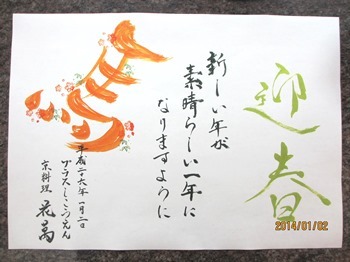 迎春
新しい年が
素晴らしい一年に
なりますように
平成二十六年一月二日
京料理 花萬
2014/01/02